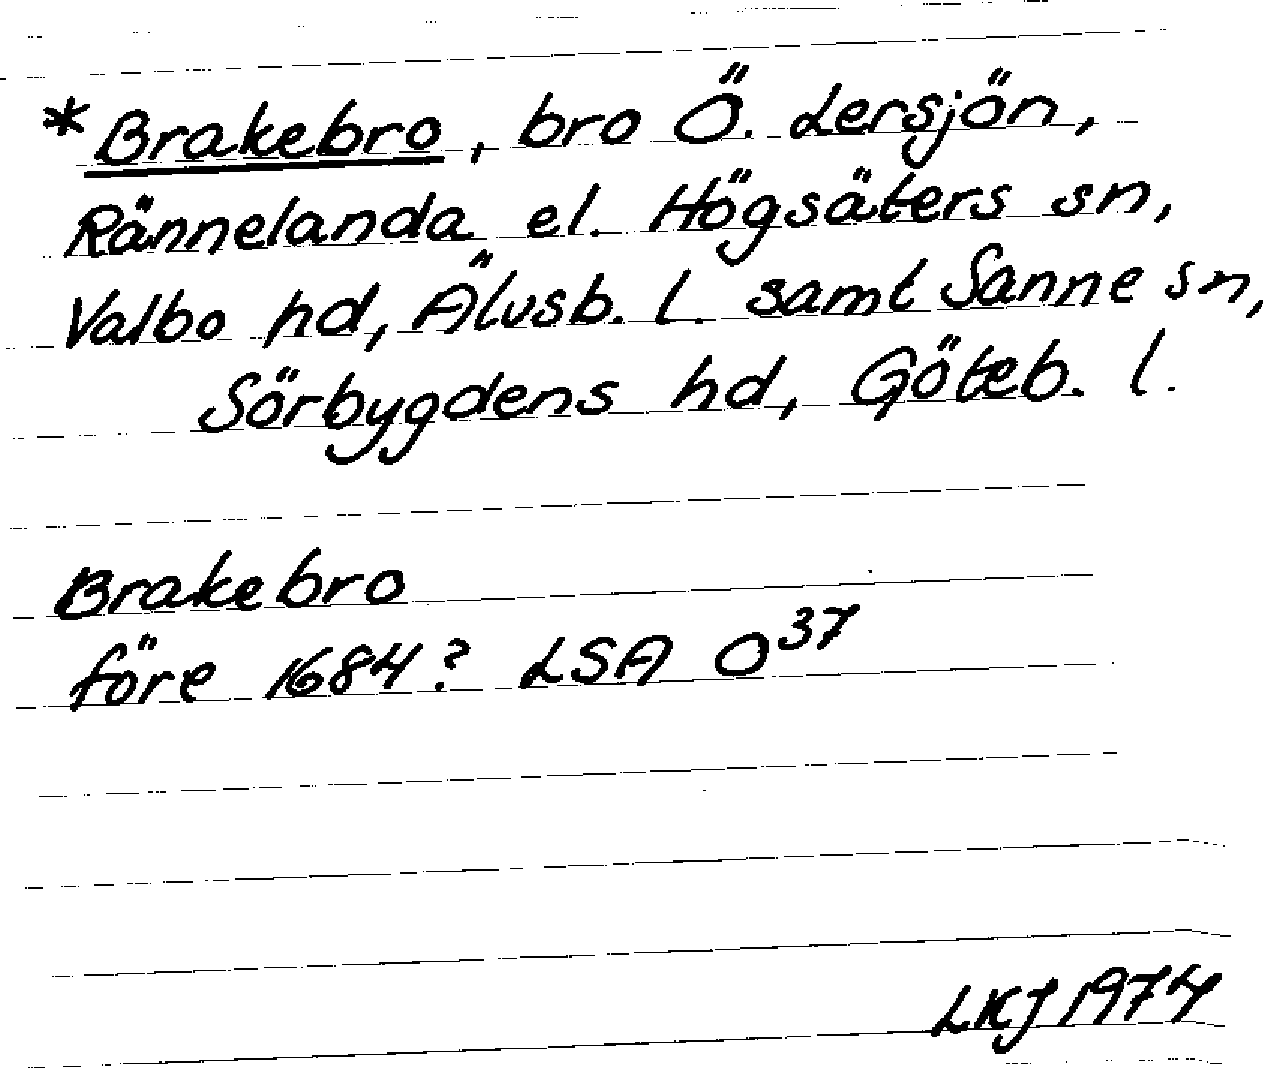 *Brakebro, bro Ö. Lersjön,
Rännelanda el. Högsäters sn,
Valbo hd, Älvsb. l. samt Sanne sn,
Sörbygdens hd, Göteb. l.
Brakebro
före 1684? LSA O³⁷
LKJ 1974